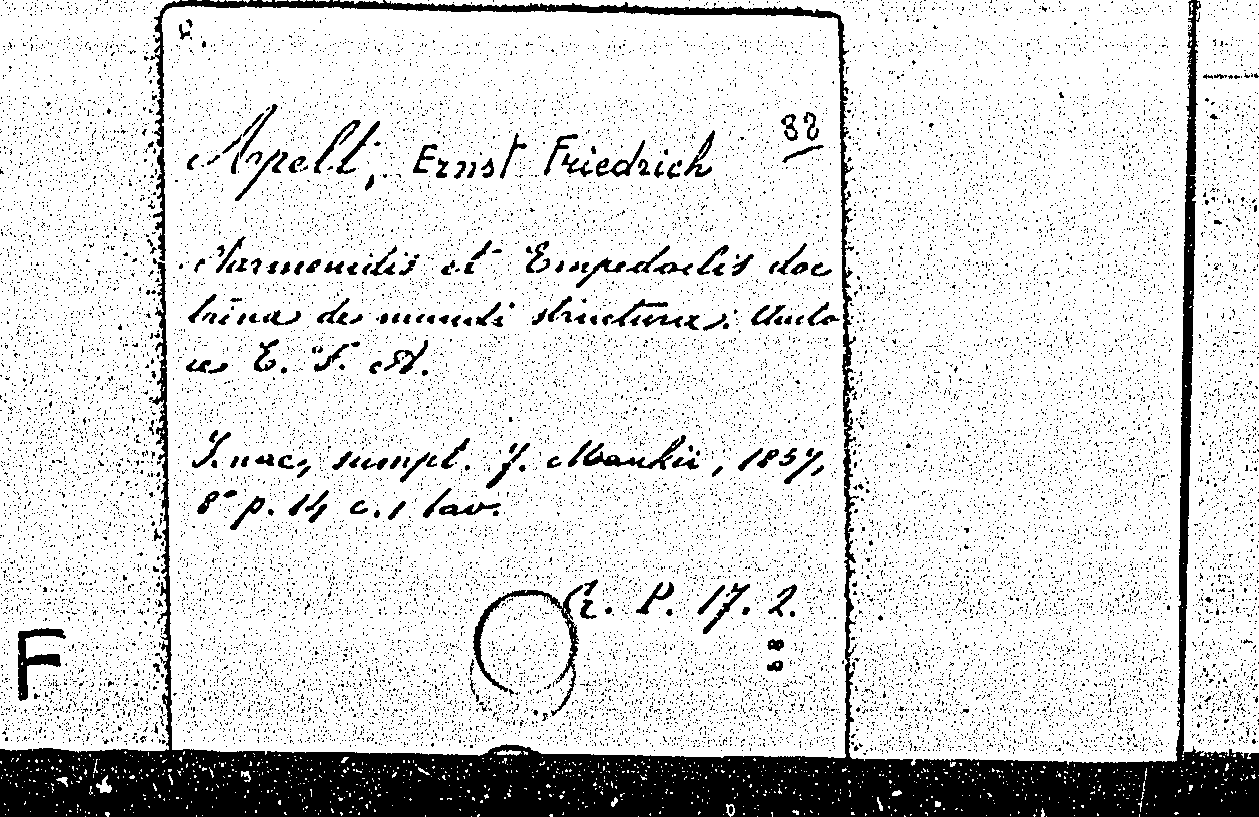 88
Apelt, Ernst Friedrich
Parmenidis et Empedoclis doc
trina de mundi structura: Aucto
re E. F. A.
Jenae, sumpt. F. Maukii, 1857,
8° p. 14 c. 1 tav.
P. 17. 2.
88
F